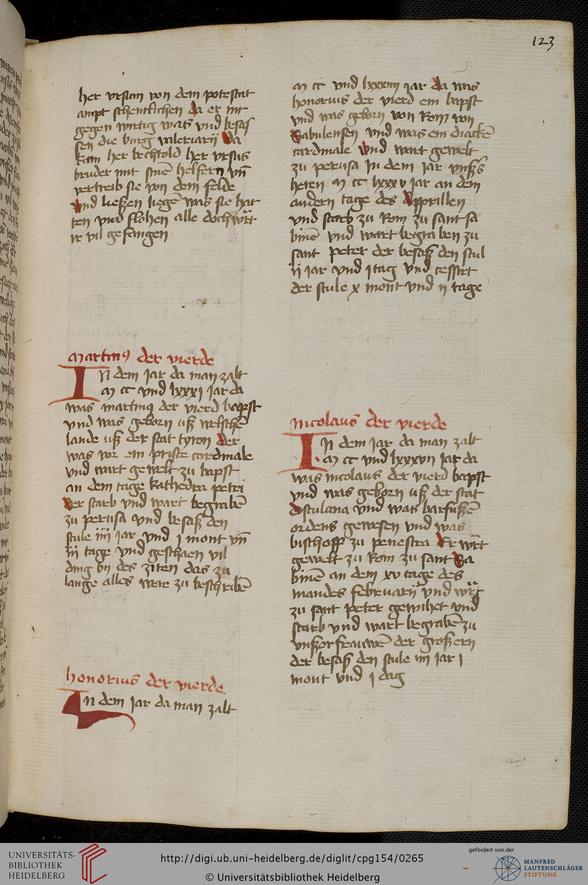 123
her vrsinn von dem potestat
ampt schentlichen da er mit
gegen wirtig was vnd besas
sen die burg valerarij Da
kam her bechtold her vrsus
bruder mit sinen helfern vn̄
vertreib sie von dem felde
vnd liessen ligen was sie hat
ten vnd flohen alle doch wart
ir vil gefangen
martin9 der vierde
In dem jar da man zalt
m cc vnd lxxxj jar da
was martin9 der vierd bapst
vnd was geborn uß welschen
lande uß der stat tyron der
was vor ein prister cardinale
vnd wart gewelt zu bapst
an dem tage kathedra petri
Der starb vnd wart begrabē
zu perusa vnd besaß den
stule iiij jar vnd j mont vn̄
iij tage vnd geschaen vil
ding by des ziten das zu
lange alles were zu beschribē
honorius der vierde
In dem jar da man zalt
m cc vnd lxxxiiij jar da was
honorius der vierd ein bapst
vnd was geborn von Rom von
Sabulensen vnd was ein
cardinale vnd wart gewelt
zu perusa In dem jar vnß9s
heren m cc lxxxv jar an dem
andern tage des Apprillen
vnd starb zu Rom zu sant sa
binē vnd wart begraben zu
sant peter der besaß den stul
ij jar vnd j tag vnd cessirt
der stule x mont vnd ij tage
Nicolaus der vierde
In dem jar da man zalt
m cc vnd lxxxvij jar da
was nicolaus der vierd bapst
vnd was geborn uß der stat
Estulana vnd was barfussē
ordens gewesen vnd was
bischoff zu penestra Er wart
gewelt zu Rom zu sant Sa
binē an dem xv tage des
mandes februarij vnd wart
zu sant peter gewihet vnd
starb vnd wart begraben zu
vnßer frauwen der grossern
der besaß den stule iiij jar j
mont vnd j dag
UNIVERSITÄTS-
BIBLIOTHEK
HEIDELBERG
http://digi.ub.uni-heidelberg.de/diglit/cpg154/0265
© Universitätsbibliothek Heidelberg
gefördert von der
MANFRED
LAUTENSCHLÄGER
STIFTUNG